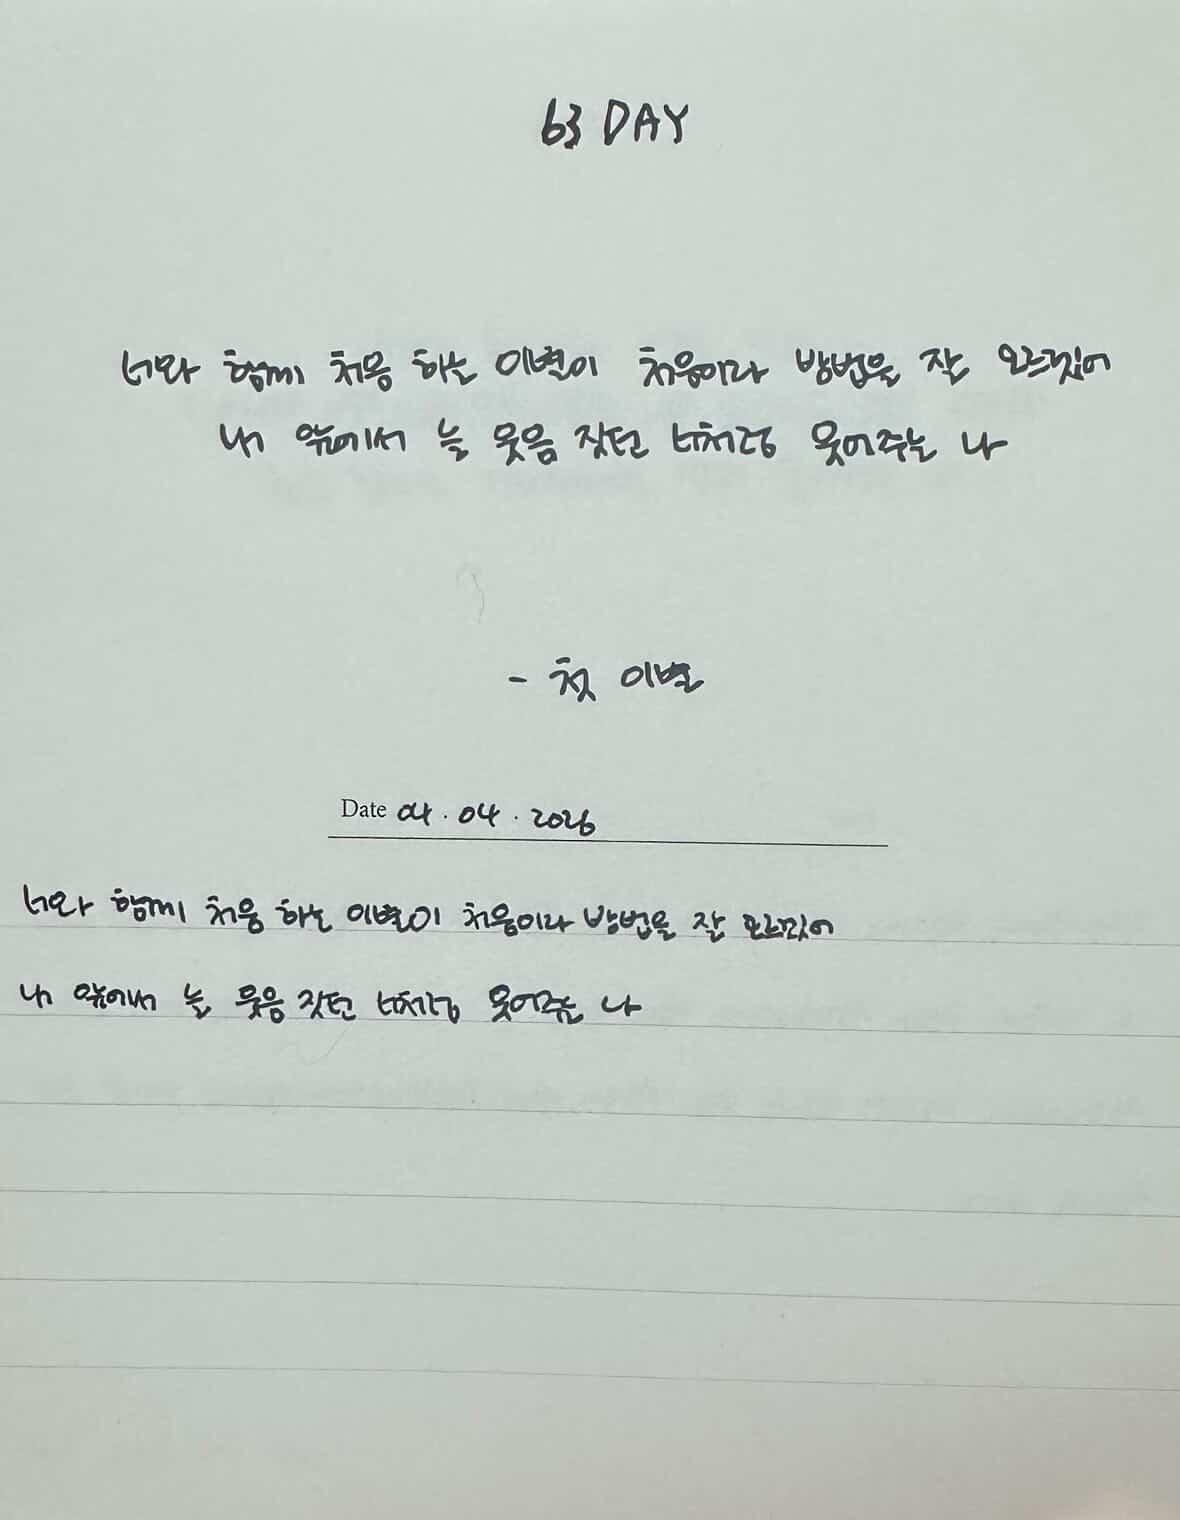 63 DAY
너와 함께 처음 하는 이별이 처음이라 방법을 잘 모르겠어
내 앞에서 늘 웃음 짓던 너처럼 웃어주는 나
- 첫 이별
Date 04 . 04 . 2026
너와 함께 처음 하는 이별이 처음이라 방법을 잘 모르겠어
내 앞에서 늘 웃음 짓던 너처럼 웃어주는 나